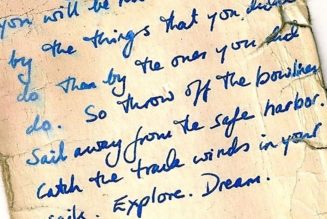 you will be
by the things that you
do than by the ones you did
do. So throw off the bowlines
Sail away from the safe harbor.
Catch the trade winds in your
sails. Explore. Dream.